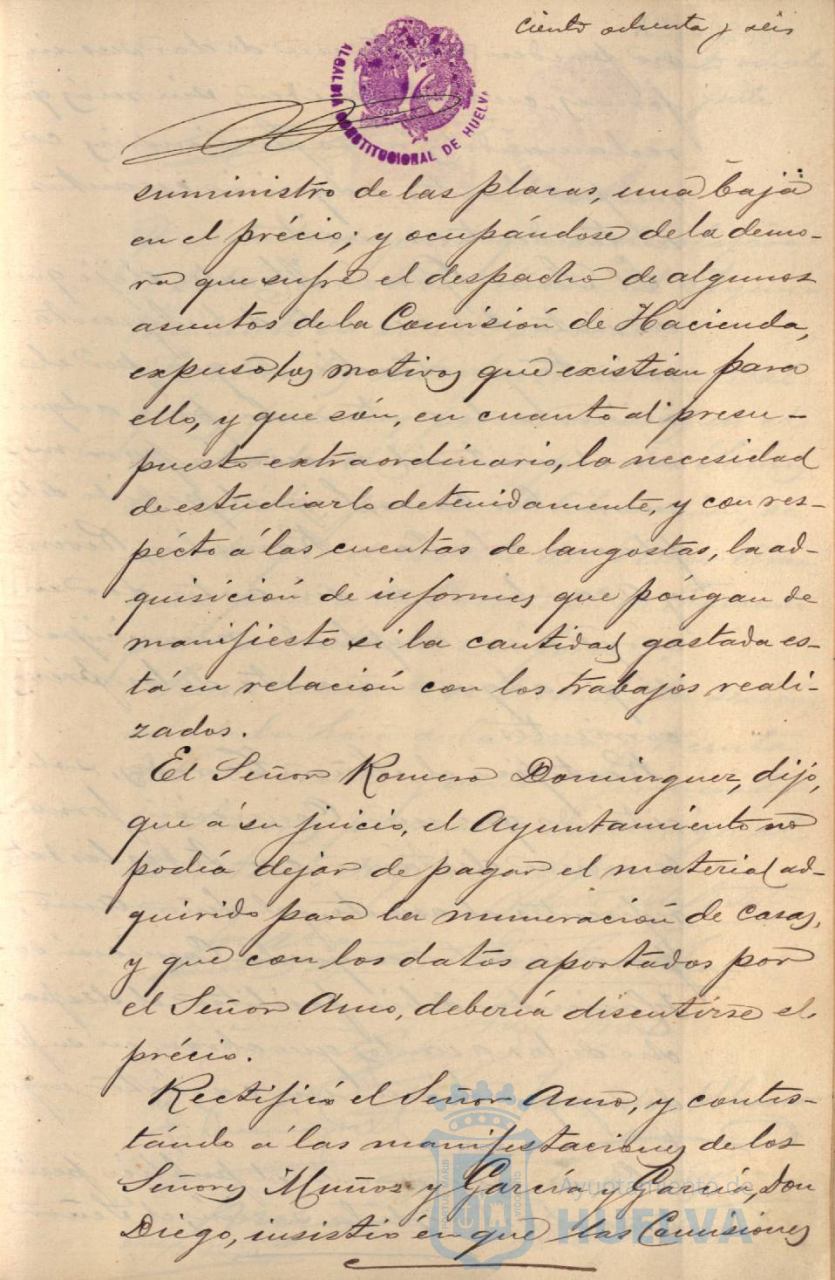 ciento ochenta y seis
ALCALDIA CONSTITUCIONAL DE HUELVA
suministro de las placas, una baja
en el précio; y ocupándose de la demo-
ra que sufre el despacho de algunos
asuntos de la Comisión de Hacienda,
expuso los motivos que existian para
ello, y que són, en cuanto al presu-
puesto extraordinario, la necesidad
de estudiarlo detenidamente, y con res-
pécto á las cuentas de langostas, la ad-
quisición de informes que póngan de
manifiesto si la cantidad gastada es-
tá en relación con los trabajos reali-
zados.
El Señor Romero Dominguez, dijo,
que á su juicio, el Ayuntamiento no
podia dejar de pagar el material ad-
quirido para la numeración de casas,
y que con los datos aportados por
el Señor Amo, deberia discutirse el
précio.
Rectificó el Señor Amo, y contes-
tándo á las manifestaciones de los
Señores Muñoz y García y García, Don
Diego, insistió en que las Comisiones
Ayuntamiento de
HUELVA